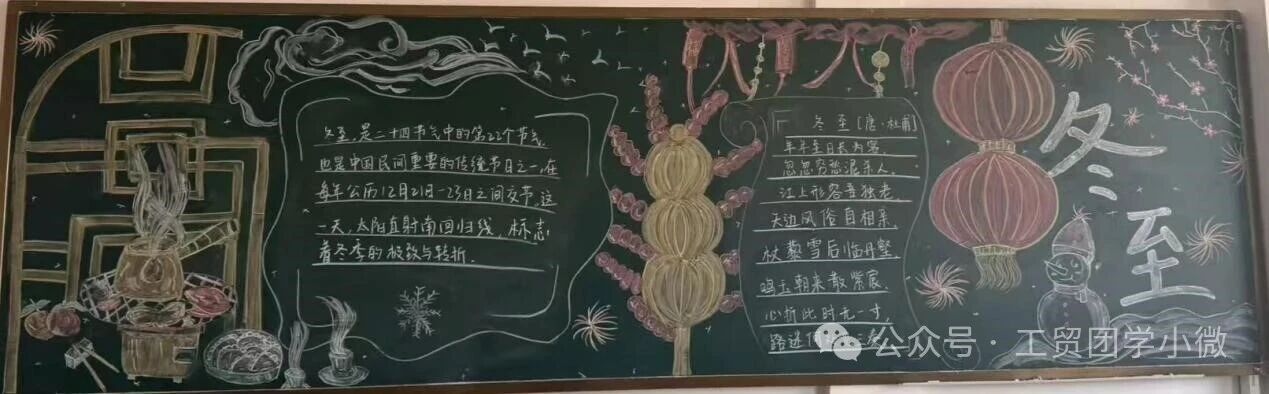 冬至,是二十四节气中的第22个节气,
也是中国民间重要的传统节日之一,在
每年公历12月21日-23日之间交节。这
一天,太阳直射南回归线,标志
着冬季的极致与转折.
冬至[唐·杜甫]
年年至日长为客,
忽忽穷愁泥杀人.
江上形容吾独老,
天边风俗自相亲,
杖藜雪后临丹壑
鸣玉朝来散紫宸.
心折此时无一寸,
路迷
冬至
公众号·工贸团学小微